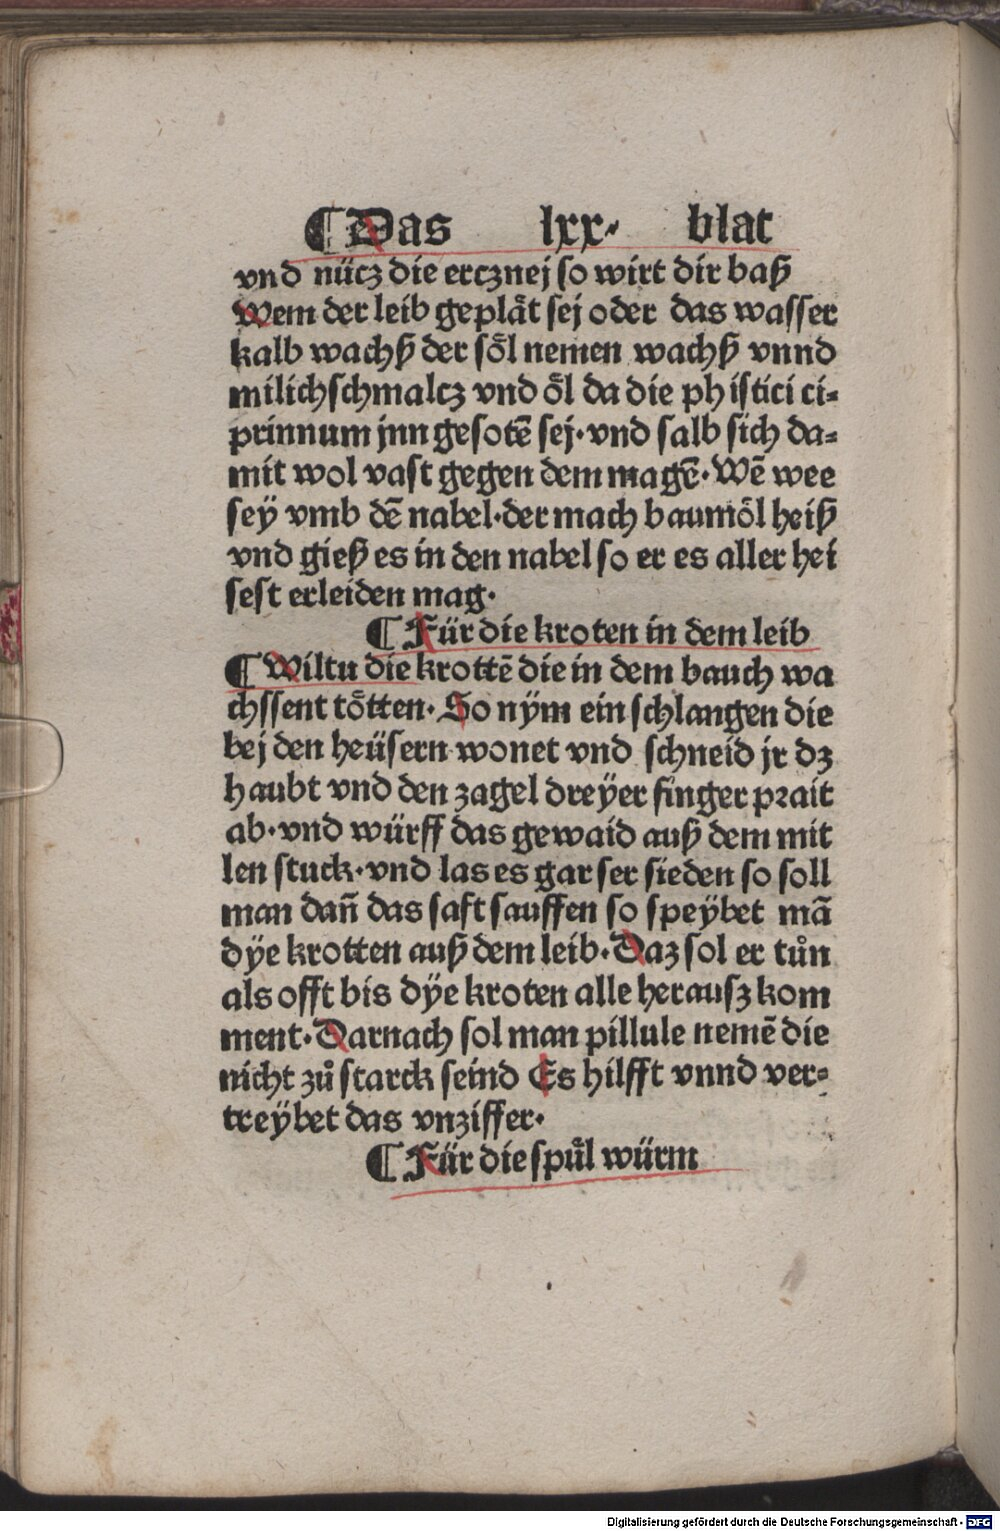 ¶ Das lxx. blat
vnd nücz die ercznej so wirt dir baß
Wem der leib geplaͤt sej oder das wasser
kalb wachß der soͤl nemen wachß vnnd
milichschmalcz vnd oͤl da die phistici ci⸗
prinnum jnn gesotē sej·vnd salb sich da⸗
mit wol vast gegen dem magē·Wē wee
sey̎ vmb dē nabel·der mach baumoͤl heiß
vnd gieß es in den nabel so er es aller hei
sest erleiden mag·
¶ Für die kroten in dem leib
¶ Wiltu die krottē die in dem bauch wa
chssent toͤtten·So nÿm ein schlangen die
bej den heüsern wonet vnd schneid jr dz
haubt vnd den zagel dreÿer finger prait
ab·vnd würff das gewaid auß dem mit
len stuck·vnd las es gar ser sieden so soll
man dan̄ das saft sauffen so speÿbet mā
dÿe krotten auß dem leib·Daz sol er tuͦn
als offt bis dÿe kroten alle herausz kom
ment·Darnach sol man pillule nemē die
nicht zuͦ starck seind Es hilfft vnnd ver⸗
treÿbet das vnziffer·
¶ Für die spuͤl würm
Digitalisierung gefördert durch die Deutsche Forschungsgemeinschaft - DFG